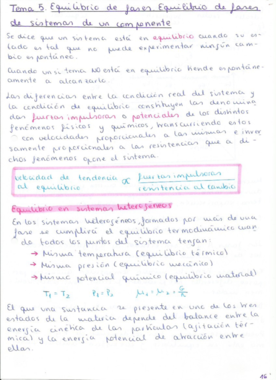 Tema 5. Equilibrio de fases. Equilibrio de fases
de sistemas de un componente
Se dice que un sistema está en equilibrio cuando su es-
tado es tal que no puede experimentar ningún cam-
bio espontáneo.
Cuando un sistema NO está en equilibrio tiende espontáne-
amente a alcanzarlo.
Las diferencias entre la condición real del sistema y
la condición de equilibrio constituyen las denomina-
das fuerzas impulsoras o potenciales de los distintos
fenómenos físicos y químicos, transcurriendo estos
con velocidades proporcionales a las mismas e inver
samente proporcionales a las resistencias que a di-
chos fenómenos opone el sistema.
velocidad de tendencia al equilibrio ∝ fuerzas impulsoras / resistencia al cambio
Equilibrio en sistemas heterogéneos
En los sistemas heterogéneos, formados por más de una
fase se cumplirá el equilibrio termodinámico cuan-
do todos los puntos del sistema tengan:
→ Misma temperatura (equilibrio térmico)
→ Misma presión (equilibrio mecánico)
→ Mismo potencial químico (equilibrio material)
T₁ = T₂ P₁ = P₂ μ₁ = μ₂ =
El que una sustancia se presente en uno de los tres
estados de la materia depende del balance entre la
energía cinética de las partículas (agitación tér-
mica) y la energía potencial de atracción entre
ellas.
16